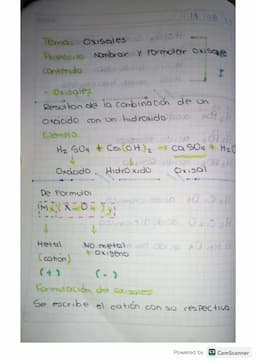 Tema: Oxisales
Propósito: Nombrar y formular oxisales
Contenido
- Oxisales
Resultan de la combinación de un
oxácido con un hidróxido
Ejemplo
H2 SO4 + Ca(OH)2 → CaSO4 + H2O
Oxácido Hidróxido Oxisal
De Formula:
Metal No metal
(catión) + oxígeno
(+) (-)
Formulación de oxisales
Se escribe el catión con su respectiva
Powered by CS CamScanner